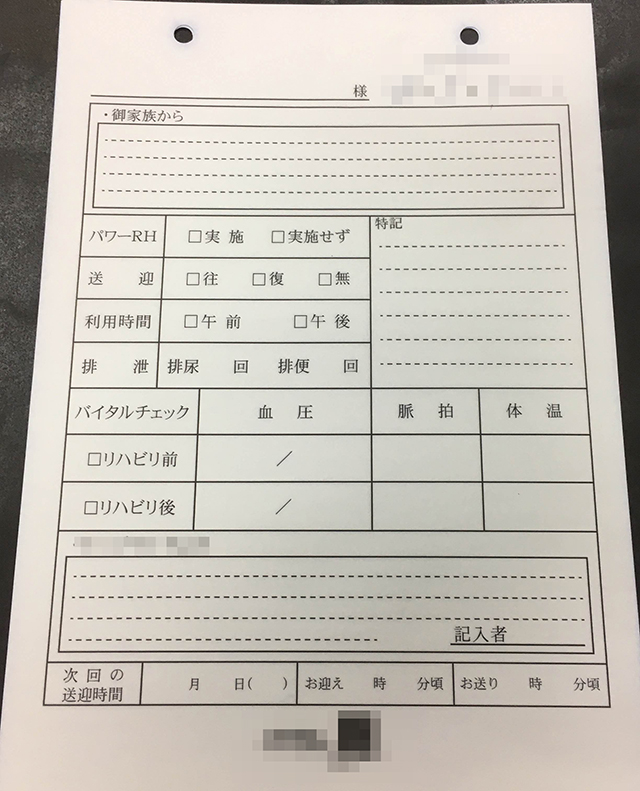 様
・御家族から
パワーRH □実 施 □実施せず 特記
送 迎 □往 □復 □無
利用時間 □午 前 □午 後
排 泄 排尿 回 排便 回
バイタルチェック 血 圧 脈 拍 体 温
□リハビリ前 ／
□リハビリ後 ／
記入者
次 回 の
送迎時間 月 日( ) お迎え 時 分頃 お送り 時 分頃